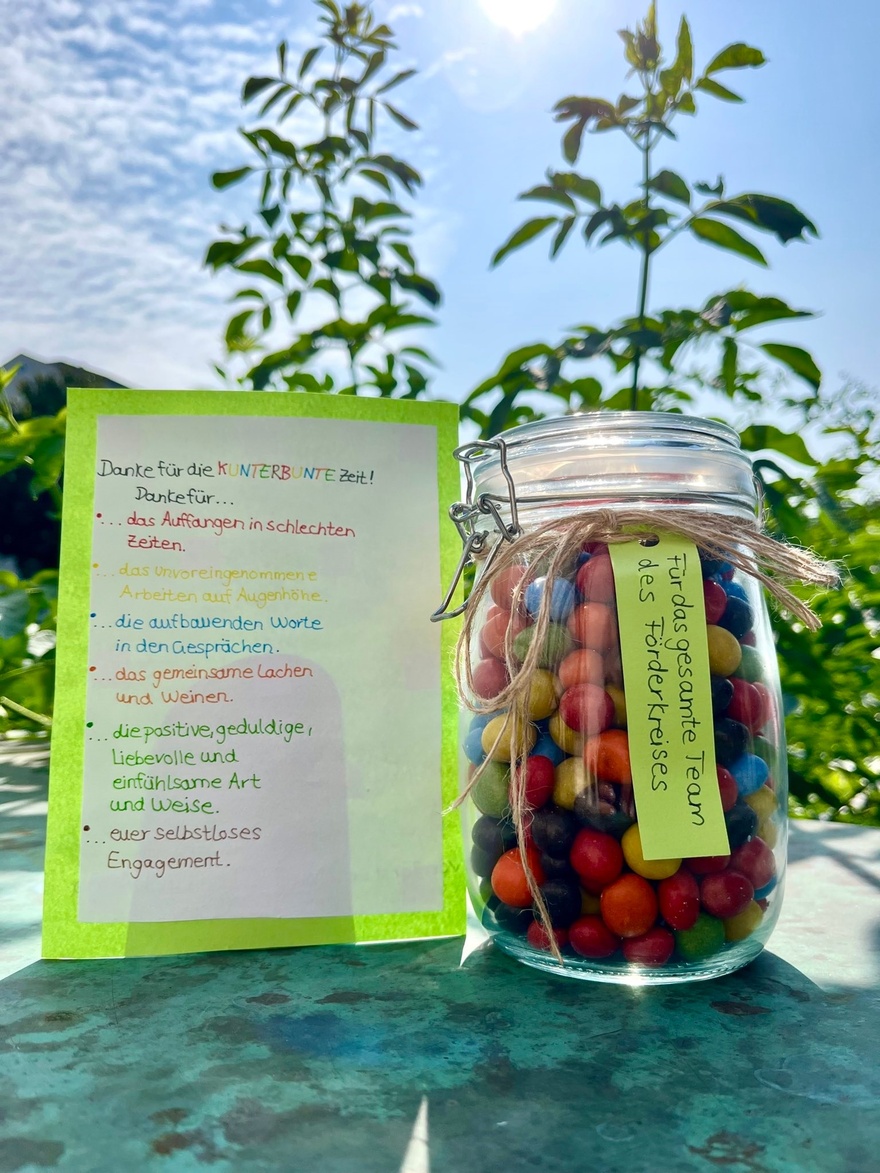 Danke für die KUNTERBUNTE Zeit!
Danke für...
• ... das Auffangen in schlechten
Zeiten.
• ... das unvoreingenommene
Arbeiten auf Augenhöhe.
• ... die aufbauenden Worte
in den Gesprächen.
• ... das gemeinsame Lachen
und Weinen.
• ... die positive, geduldige,
Liebevolle und
einfühlsame Art
und Weise.
• ... euer selbstloses
Engagement.
Für das gesamte Team
des Förderkreises